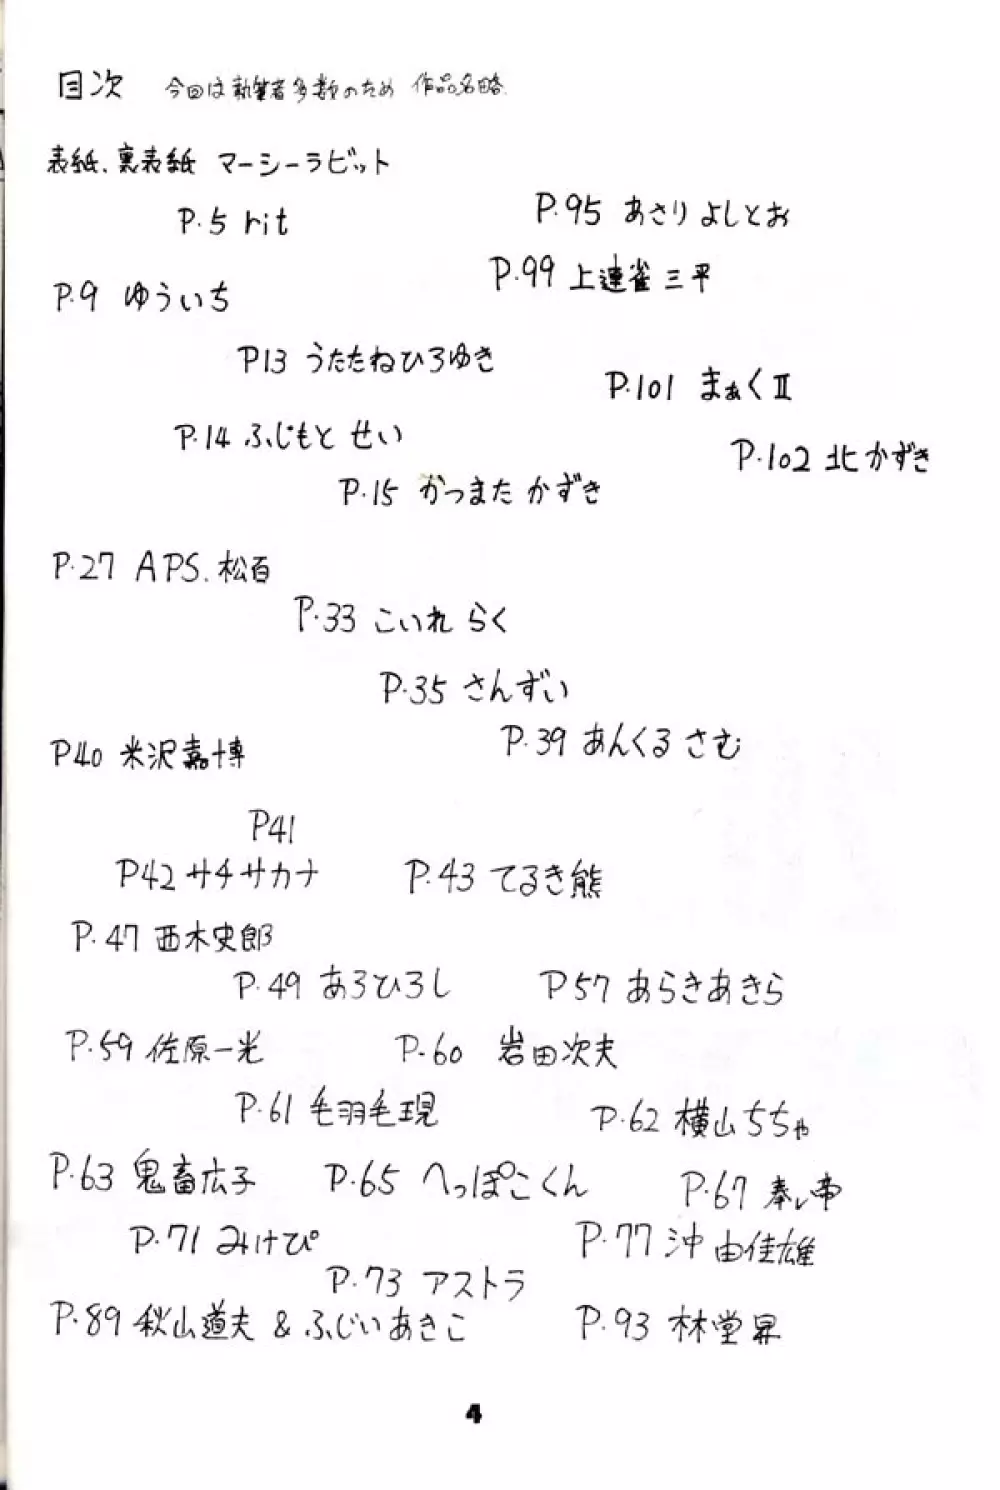 目次　今回は執筆者多数のため 作品名略.
表紙、裏表紙 マーシーラビット
P.5 rit
P.9 ゆういち
P13 うたたねひろゆき
P.14 ふじもと せい
P.15 かつまた かずき
P.27 APS.松百
P.33 こいれ らく
P.35 さんずい
P.39 あんくる さむ
P40 米沢嘉博
P41
P42 サチサカナ
P.43 てるき熊
P.47 西木史郎
P.49 あろひろし
P57 あらきあきら
P.59 佐原一光
P.60 岩田次夫
P.61 毛羽毛現
P.62 横山ちちゃ
P.63 鬼畜広子
P.65 へっぽこくん
P.67
P.71 みけぴ
P.73 アストラ
P.77 沖 由佳雄
P.89 秋山道夫 & ふじいあきこ
P.93 林堂昇
P.95 あさり よしとお
P.99 上連雀 三平
P.101 まぁくⅡ
P.102 北 かずき
4